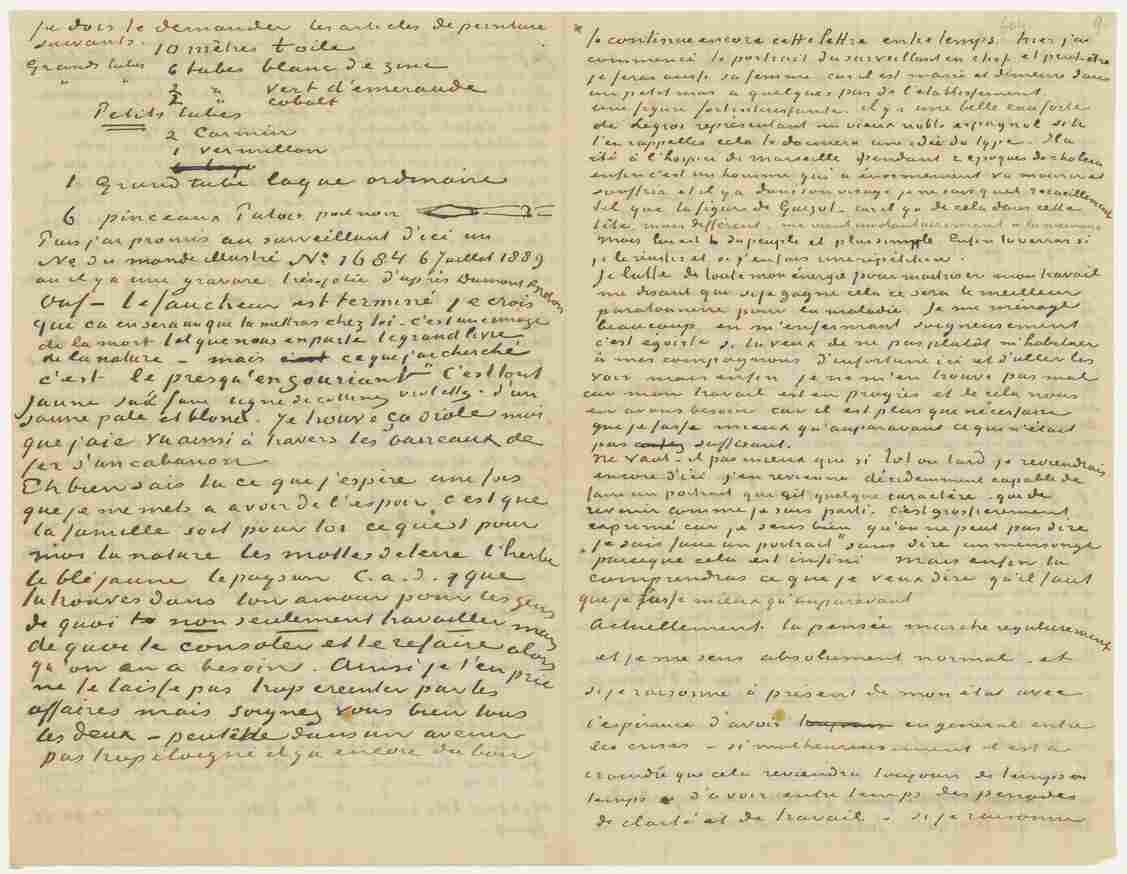 Je dois te demander les articles de peinture
suivants.
10 mètres toile
Grands tubes 6 tubes blanc de zinc
" " 2 " vert d'émeraude
2 " cobalt
Petits tubes
2 Carmin
1 vermillon
1 Grand tube laque ordinaire
6 pinceaux Putois poil noir
Puis j'ai promis au surveillant d'ici un
No du monde illustré No 1684 6 Juillet 1889
où il y a une gravure très jolie d'après Demont Breton
Ouf – le faucheur est terminé je crois
que ca en sera un que tu mettras chez toi – c'est une image
de la mort tel que nous en parle le grand livre
de la nature – mais ce que j'ai cherché
c'est le presqu'en souriant". C'est tout
jaune sauf une ligne de collines violettes – d'un
jaune pale et blond. Je trouve ça drole moi
que j'aie vu ainsi à travers les barreaux de
fer d'un cabanon
Eh bien sais tu ce que j'espère une fois
que je me mets à avoir de l'espoir, c'est que
la famille soit pour toi ce qu'est pour
moi la nature les mottes de terre l'herbe
le blé jaune le paysan c.à.d. que
tu trouves dans ton amour pour les gens
de quoi non seulement travailler mais
de quoi te consoler et te refaire alors
qu'on en a besoin. Ainsi je t'en prie
ne te laisse pas trop éreinter par les
affaires mais soignez vous bien tous
les deux – peutêtre dans un avenir
pas trop eloigné il y a encore du bon
9.
Je continue encore cette lettre entre temps. hier j'ai
commencé le portrait du surveillant en chef et peutêtre
je ferai aussi sa femme car il est marié et demeure dans
un petit mas à quelques pas de l'établissement.
une figure fort interessante. il y a une belle eau forte
de Legros représentant un vieux noble espagnol si tu
t'en rappelles cela te donnera une idée du type. Il a
été à l'hospice de marseille pendant 2 epoques de cholera
enfin c'est un homme qui a enormement vu mourir et
souffrir et il y a dans son visage je ne sais quel recueillement
tel que la figure de Guizot – car il y a de cela dans cette
tête, mais différent – me vient involontairement à la mémoire
mais lui est du peuple et plus simple Enfin tu verras si
je le réussis et si j'en fais une répétition.
Je lutte de toute mon énergie pour maitriser mon travail
me disant que si je gagne cela ce sera le meilleur
paratonnerre pour la maladie. Je me ménage
beaucoup en m'enfermant soigneusement
c'est egoïste si tu veux de ne pas plutôt m'habituer
à mes compagnons d'infortune ici et d'aller les
voir mais enfin je ne m'en trouve pas mal
car mon travail est en progrès et de cela nous
en avons besoin car il est plus que nécessaire
que je fasse mieux qu'auparavant ce qui n'était
pas suffisant.
Ne vaut-il pas mieux que si tot ou tard je reviendrais
encore d'ici j'en revienne décidemment capable de
faire un portrait qui ait quelque caractère – que de
revenir comme je suis parti. C'est grossièrement
exprimé car je sens bien qu'on ne peut pas dire
„je sais faire un portrait" sans dire un mensonge
parceque cela est infini Mais enfin tu
comprendras ce que je veux dire qu'il faut
que je fasse mieux qu'auparavant
Actuellement la pensée marche regulierement
et je me sens absolument normal – et
si je raisonne à présent de mon état avec
l'espérance d'avoir en general entre
les crises – si malheureusement il est à
craindre que cela reviendra toujours de temps en
temps – d'avoir entre temps des periodes
de clarté et de travail – si je raisonne